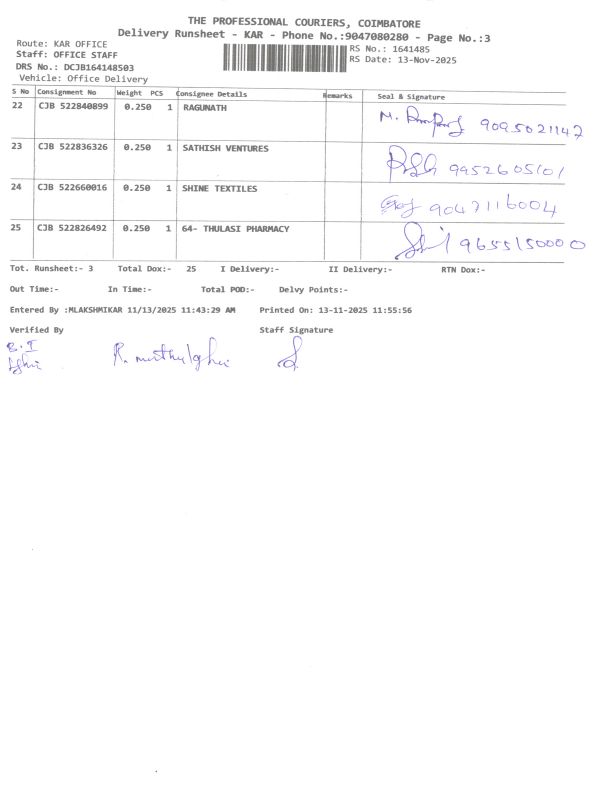 THE PROFESSIONAL COURIERS, COIMBATORE
Delivery Runsheet - KAR - Phone No.:9047080280 - Page No.:3
Route: KAR OFFICE
Staff: OFFICE STAFF
DRS No.: DCJB164148503
Vehicle: Office Delivery
RS No.: 1641485
RS Date: 13-Nov-2025
S No Consignment No Weight PCS Consignee Details Remarks Seal & Signature
22 CJB 522840899 0.250 1 RAGUNATH 9095021147
23 CJB 522836326 0.250 1 SATHISH VENTURES 9952605101
24 CJB 522660016 0.250 1 SHINE TEXTILES 9047116004
25 CJB 522826492 0.250 1 64- THULASI PHARMACY 9655150000
Tot. Runsheet:- 3 Total Dox:- 25 I Delivery:- II Delivery:- RTN Dox:-
Out Time:- In Time:- Total POD:- Delvy Points:-
Entered By :MLAKSHMIKAR 11/13/2025 11:43:29 AM Printed On: 13-11-2025 11:55:56
Verified By Staff Signature